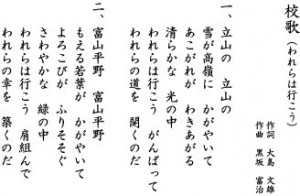 校歌（われらは行こう）
作詞 大島 文雄
作曲 黒坂 富治
一、立山の 立山の
雪が高嶺に かがやいて
あこがれが わきあがる
清らかな 光の中
われらは行こう がんばって
われらの道を 開くのだ
二、富山平野 富山平野
もえる若葉が かがやいて
よろこびが ふりそそぐ
さわやかな 緑の中
われらは行こう 肩組んで
われらの幸を 築くのだ